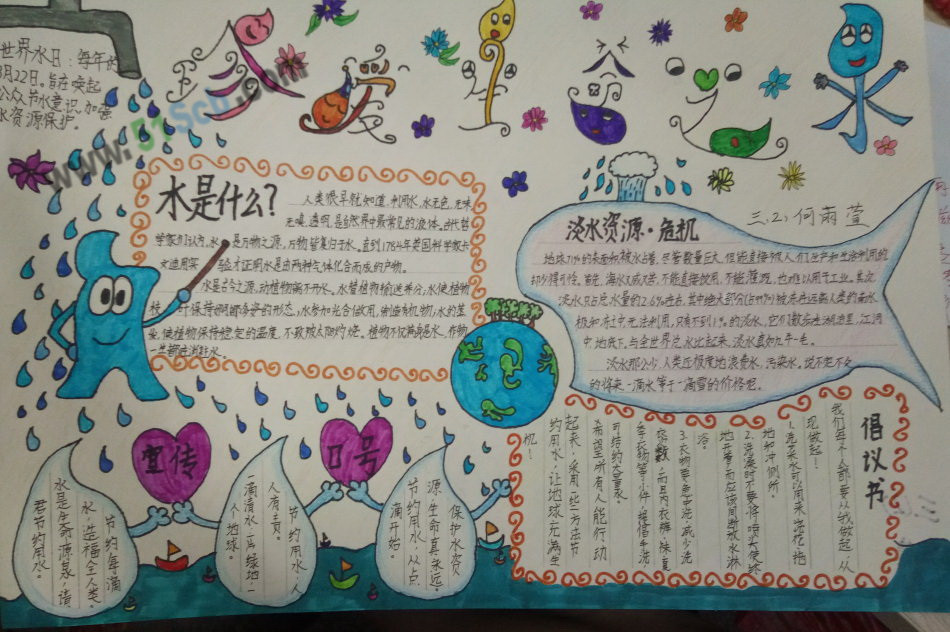 世界水日：每年的
3月22日。旨在唤起
公众节水意识，加强
水资源保护。
www.51Scb.com
三.2 何雨萱
水是什么？
人类很早就知道，利用水，水无色，无味
无嗅，透明，是自然界中最常见的液体。古代哲
学家们认为，水是万物之源，万物皆复归于水。直到1784年英国科学家卡
文迪用实验才证明水是由两种气体化合而成的产物。
水是生命之源，动植物离不开水。水替植物输送养分，水使植物
枝叶保持婀娜多姿的形态，水参加光合做用，制造有机物，水的蒸
发，使植物保持稳定的温度，不致被太阳灼烧。植物不仅满身是水，作物
一生都在消耗水。
淡水资源·危机
地球71%的表面积被水占着，尽管数量巨大，但能直接被人们生产和生活利用的
却少得可怜。首先，海水又咸又苦，不能直接饮用，不能灌溉，也难以用于工业。其次
淡水只占总水量的2.6%左右，其中绝大部分
极和冰川中，无法利用，只有不到1%的淡水，它们散布在湖泊里，江河
中，地底下。与全世界总水比起来，淡水真如九牛一毛。
淡水那么少，人类还极度地浪费水，污染水，说不定不久
的将来一滴水等于一滴雪的价格呢。
倡议书
我们每个人都要从我做起，从
现做起！
1.洗菜水可用来浇花、拖
地和冲厕所。
2.洗澡时不要将喷头使终
地开着，而应该间断放水淋
浴。
3.衣物要集中洗，减少洗
衣数，而且内衣裤、袜、夏
季衣物等小件，提倡手洗
可结约大量水。
希望所有人能行动
起来，采用一些方法节
约用水，让地球充满生
机！
宣传
口号
节约每一滴
水，造福全人类。
水是生命源泉，请
君节约用水。
节约用水，人
人有责。
一滴清水，一片绿地，一
个地球。
保护水资
源，生命真永远。
节约用水，从点
滴开始。